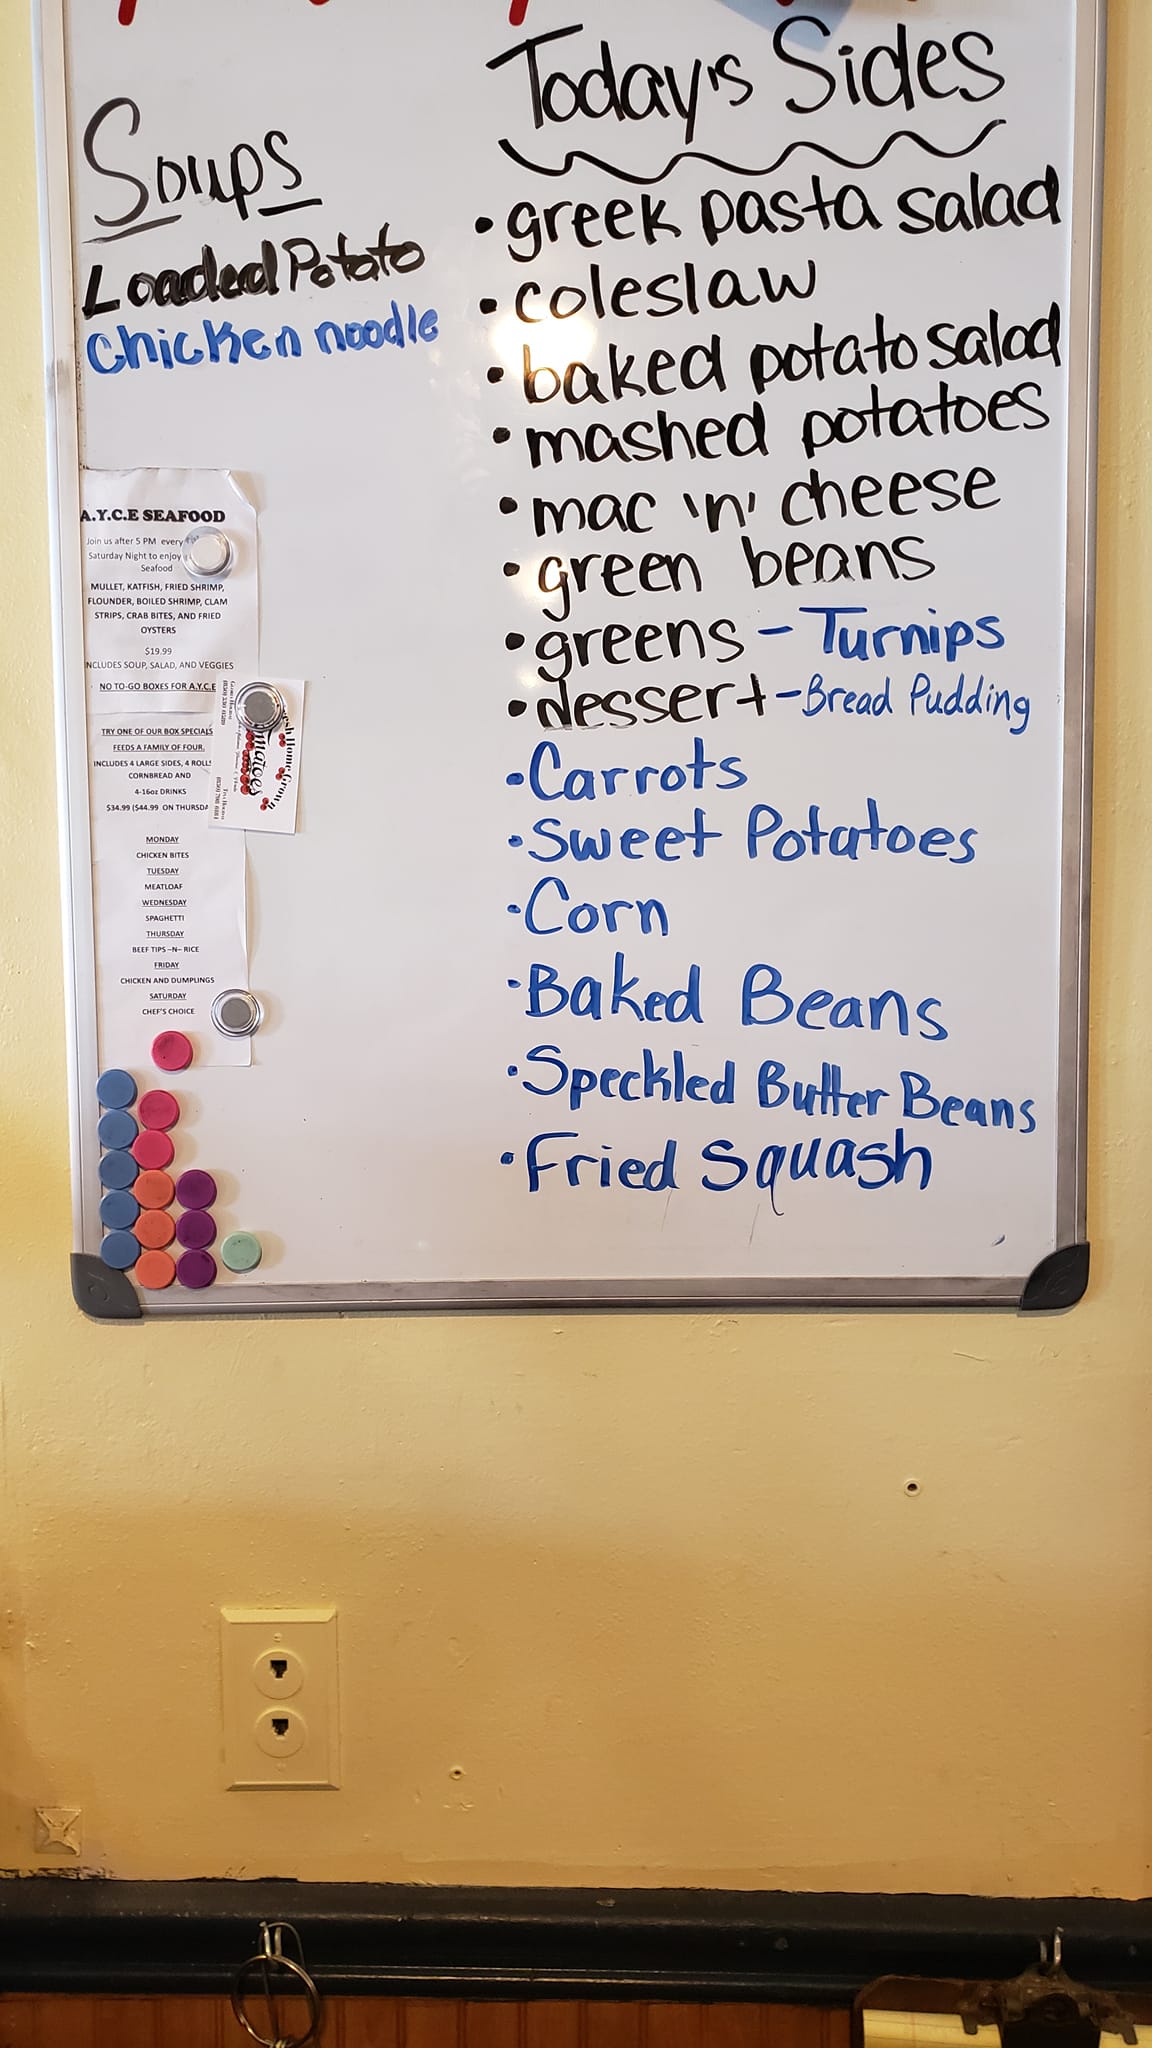 Soups
Loaded Potato
Chicken noodle
Today's Sides
• greek pasta salad
• coleslaw
• baked potato salad
• mashed potatoes
• mac 'n' cheese
• green beans
• greens - Turnips
• dessert - Bread Pudding
• Carrots
• Sweet Potatoes
• Corn
• Baked Beans
• Speckled Butter Beans
• Fried Squash
A.Y.C.E SEAFOOD
Join us after 5 PM every
Saturday Night to enjoy
Seafood
MULLET, KATFISH, FRIED SHRIMP,
FLOUNDER, BOILED SHRIMP, CLAM
STRIPS, CRAB BITES, AND FRIED
OYSTERS
$19.99
INCLUDES SOUP, SALAD, AND VEGGIES
NO TO-GO BOXES FOR A.Y.C.E
TRY ONE OF OUR BOX SPECIALS
FEEDS A FAMILY OF FOUR.
INCLUDES 4 LARGE SIDES, 4 ROLLS
CORNBREAD AND
4-16oz DRINKS
$34.99 ($44.99 ON THURSDA
MONDAY
CHICKEN BITES
TUESDAY
MEATLOAF
WEDNESDAY
SPAGHETTI
THURSDAY
BEEF TIPS -N- RICE
FRIDAY
CHICKEN AND DUMPLINGS
SATURDAY
CHEF'S CHOICE
Home Grown